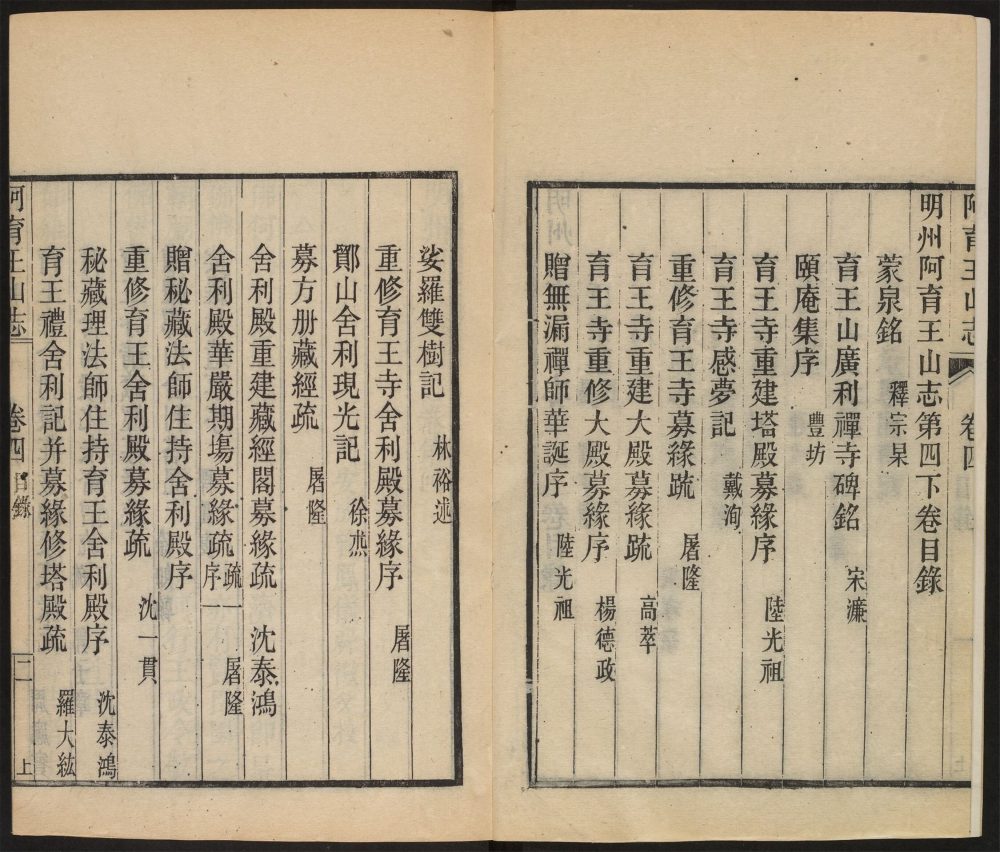 阿育王山志 卷四
明州阿育王山志第四下卷目錄
蒙泉銘 釋宗杲
育王山廣利禪寺碑銘 宋濂
頤庵集序 豐坊
育王寺重建塔殿募緣序 陸光祖
育王寺感夢記 戴洵
重修育王寺募緣䟽 屠隆
育王寺重建大殿募緣䟽 高萃
育王寺重修大殿募緣序 楊德政
贈無漏禪師華誕序 陸光祖
娑羅雙樹記 林裕述
重修育王寺舍利殿募緣序 屠隆
鄮山舍利現光記 徐𤋮
募方册藏經疏 屠隆
舍利殿重建藏經閣募緣疏 沈泰鴻
舍利殿華嚴期塲募緣疏 疏一序一 屠隆
贈秘藏法師住持舍利殿序
重修育王舍利殿募緣疏 沈一貫
秘藏理法師住持育王舍利殿序 沈泰鴻
育王禮舍利記并募緣修塔殿疏 羅大紘
阿育王山志 卷四目錄 二 上